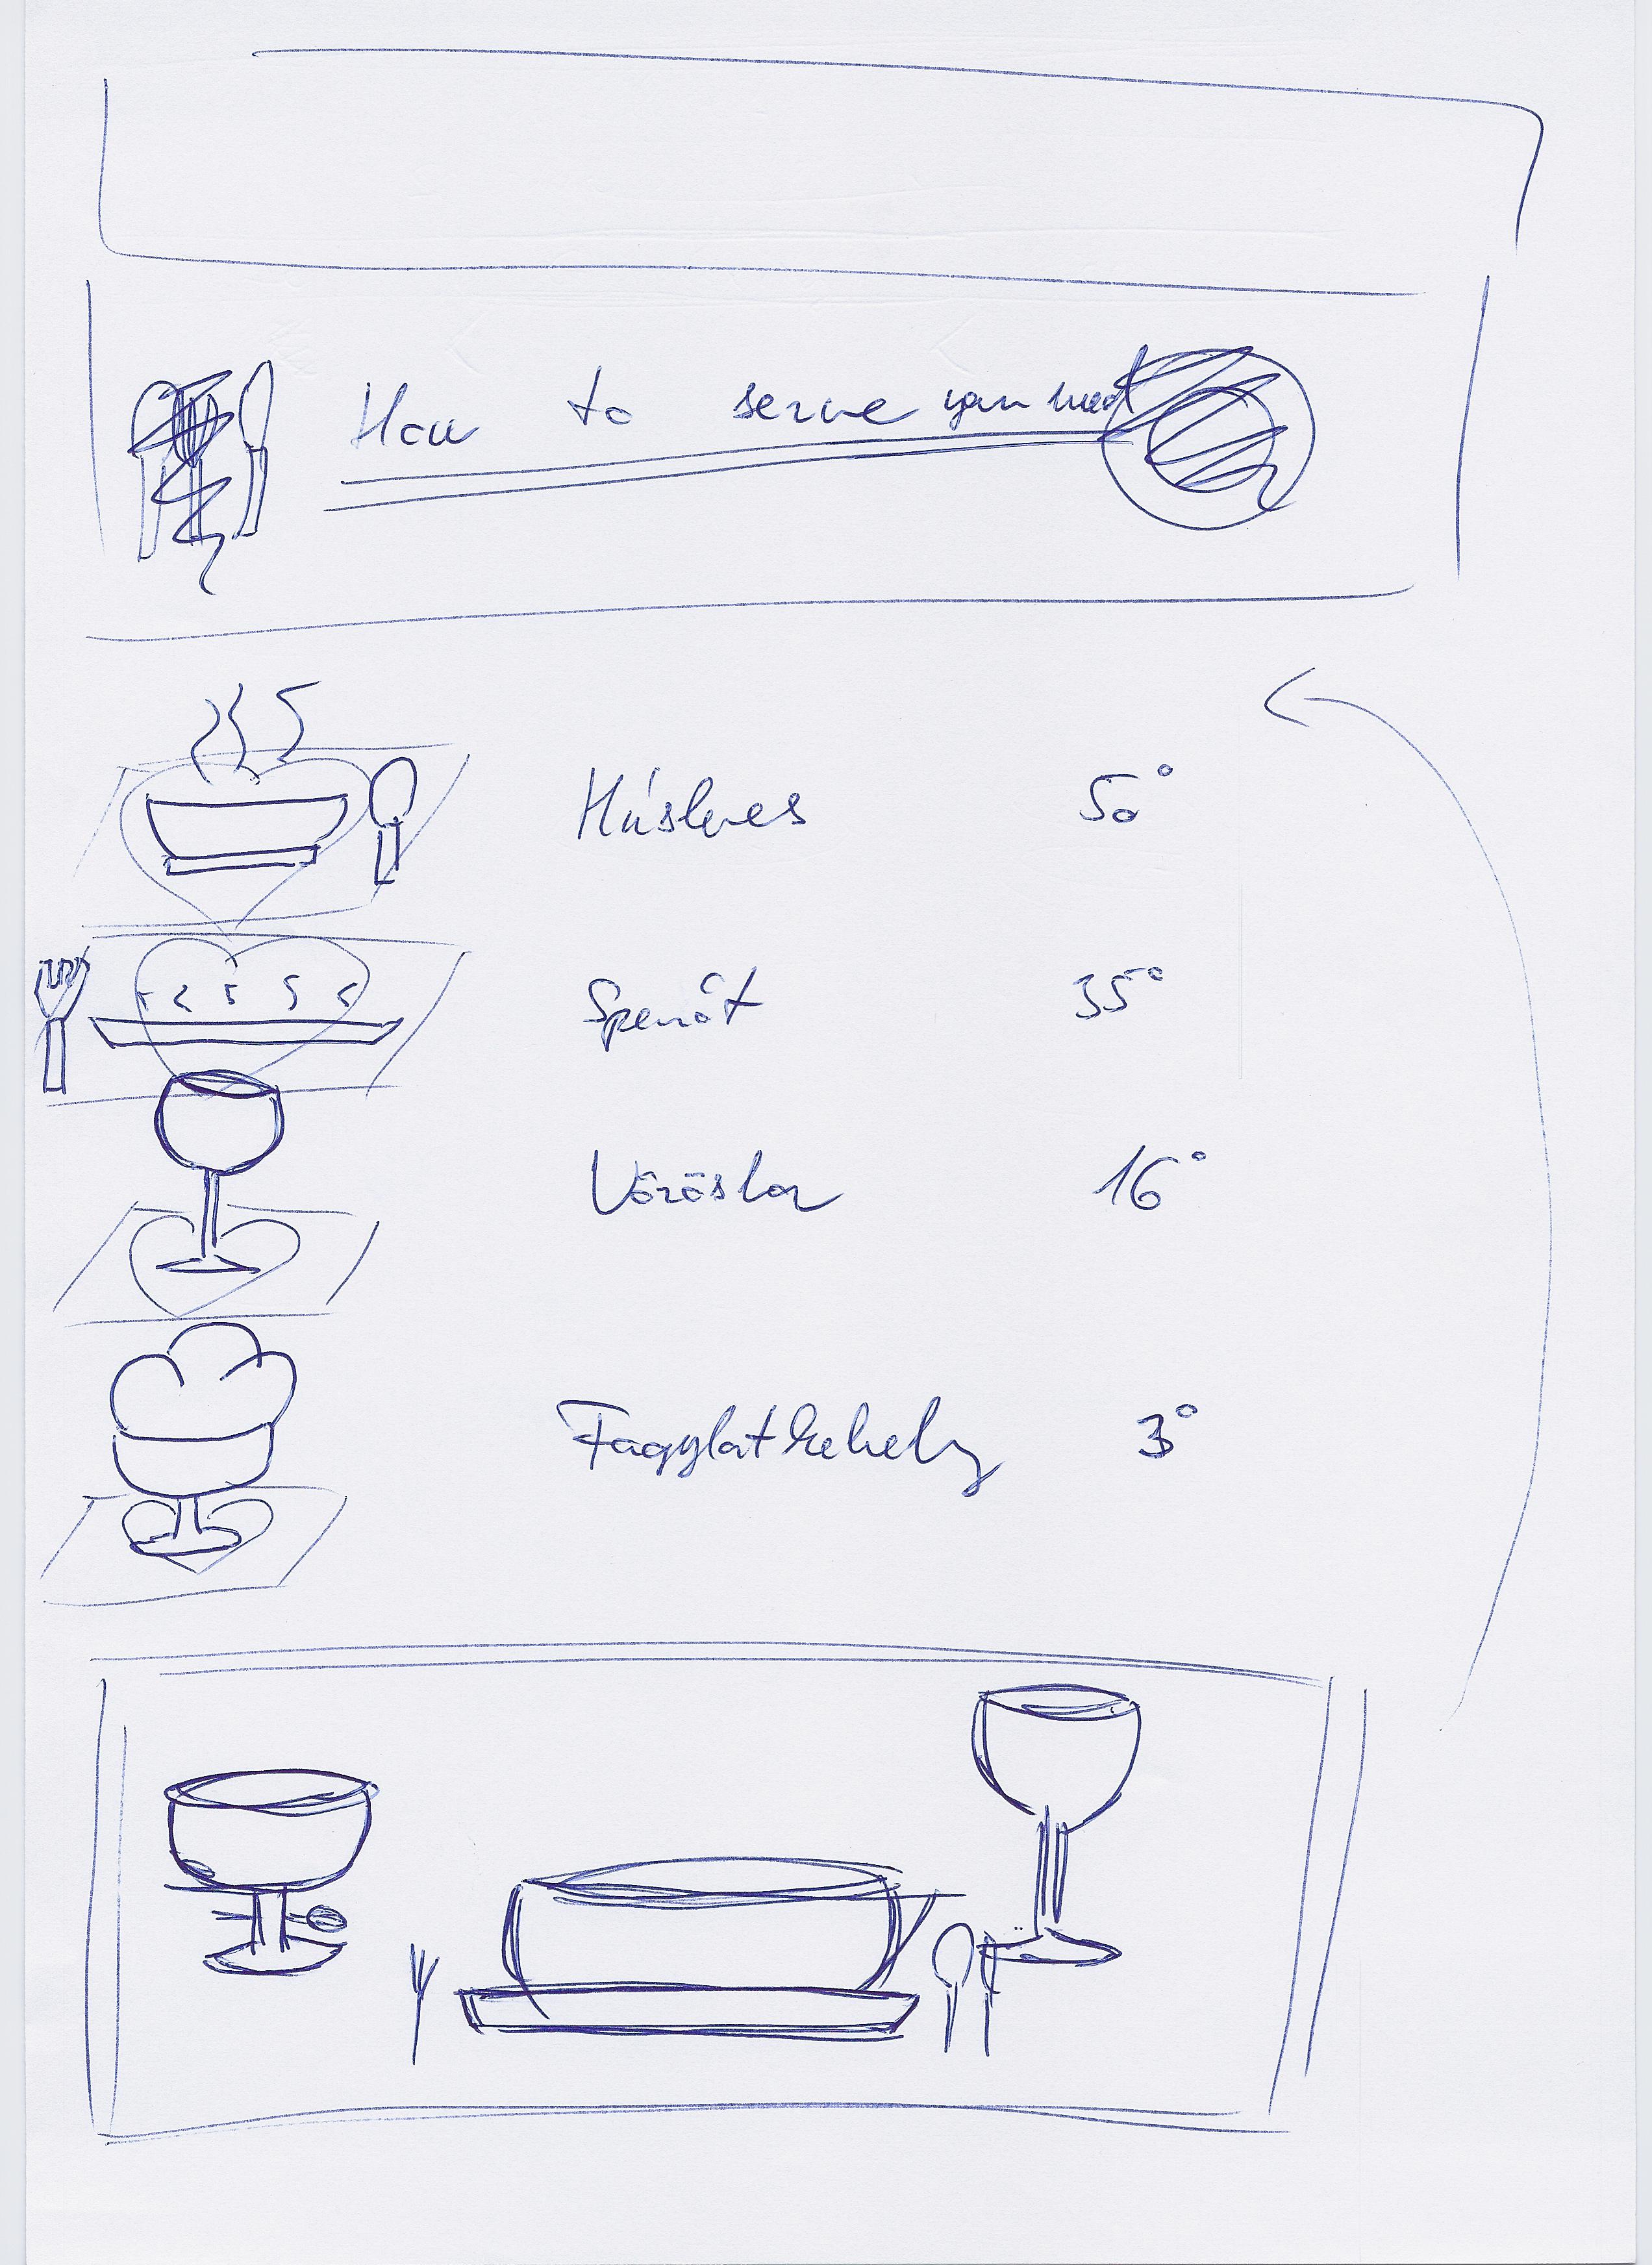 How to serve your meal
Húsleves 50°
Spenót 35°
Vörösbor 16°
Fagylaltkehely 3°